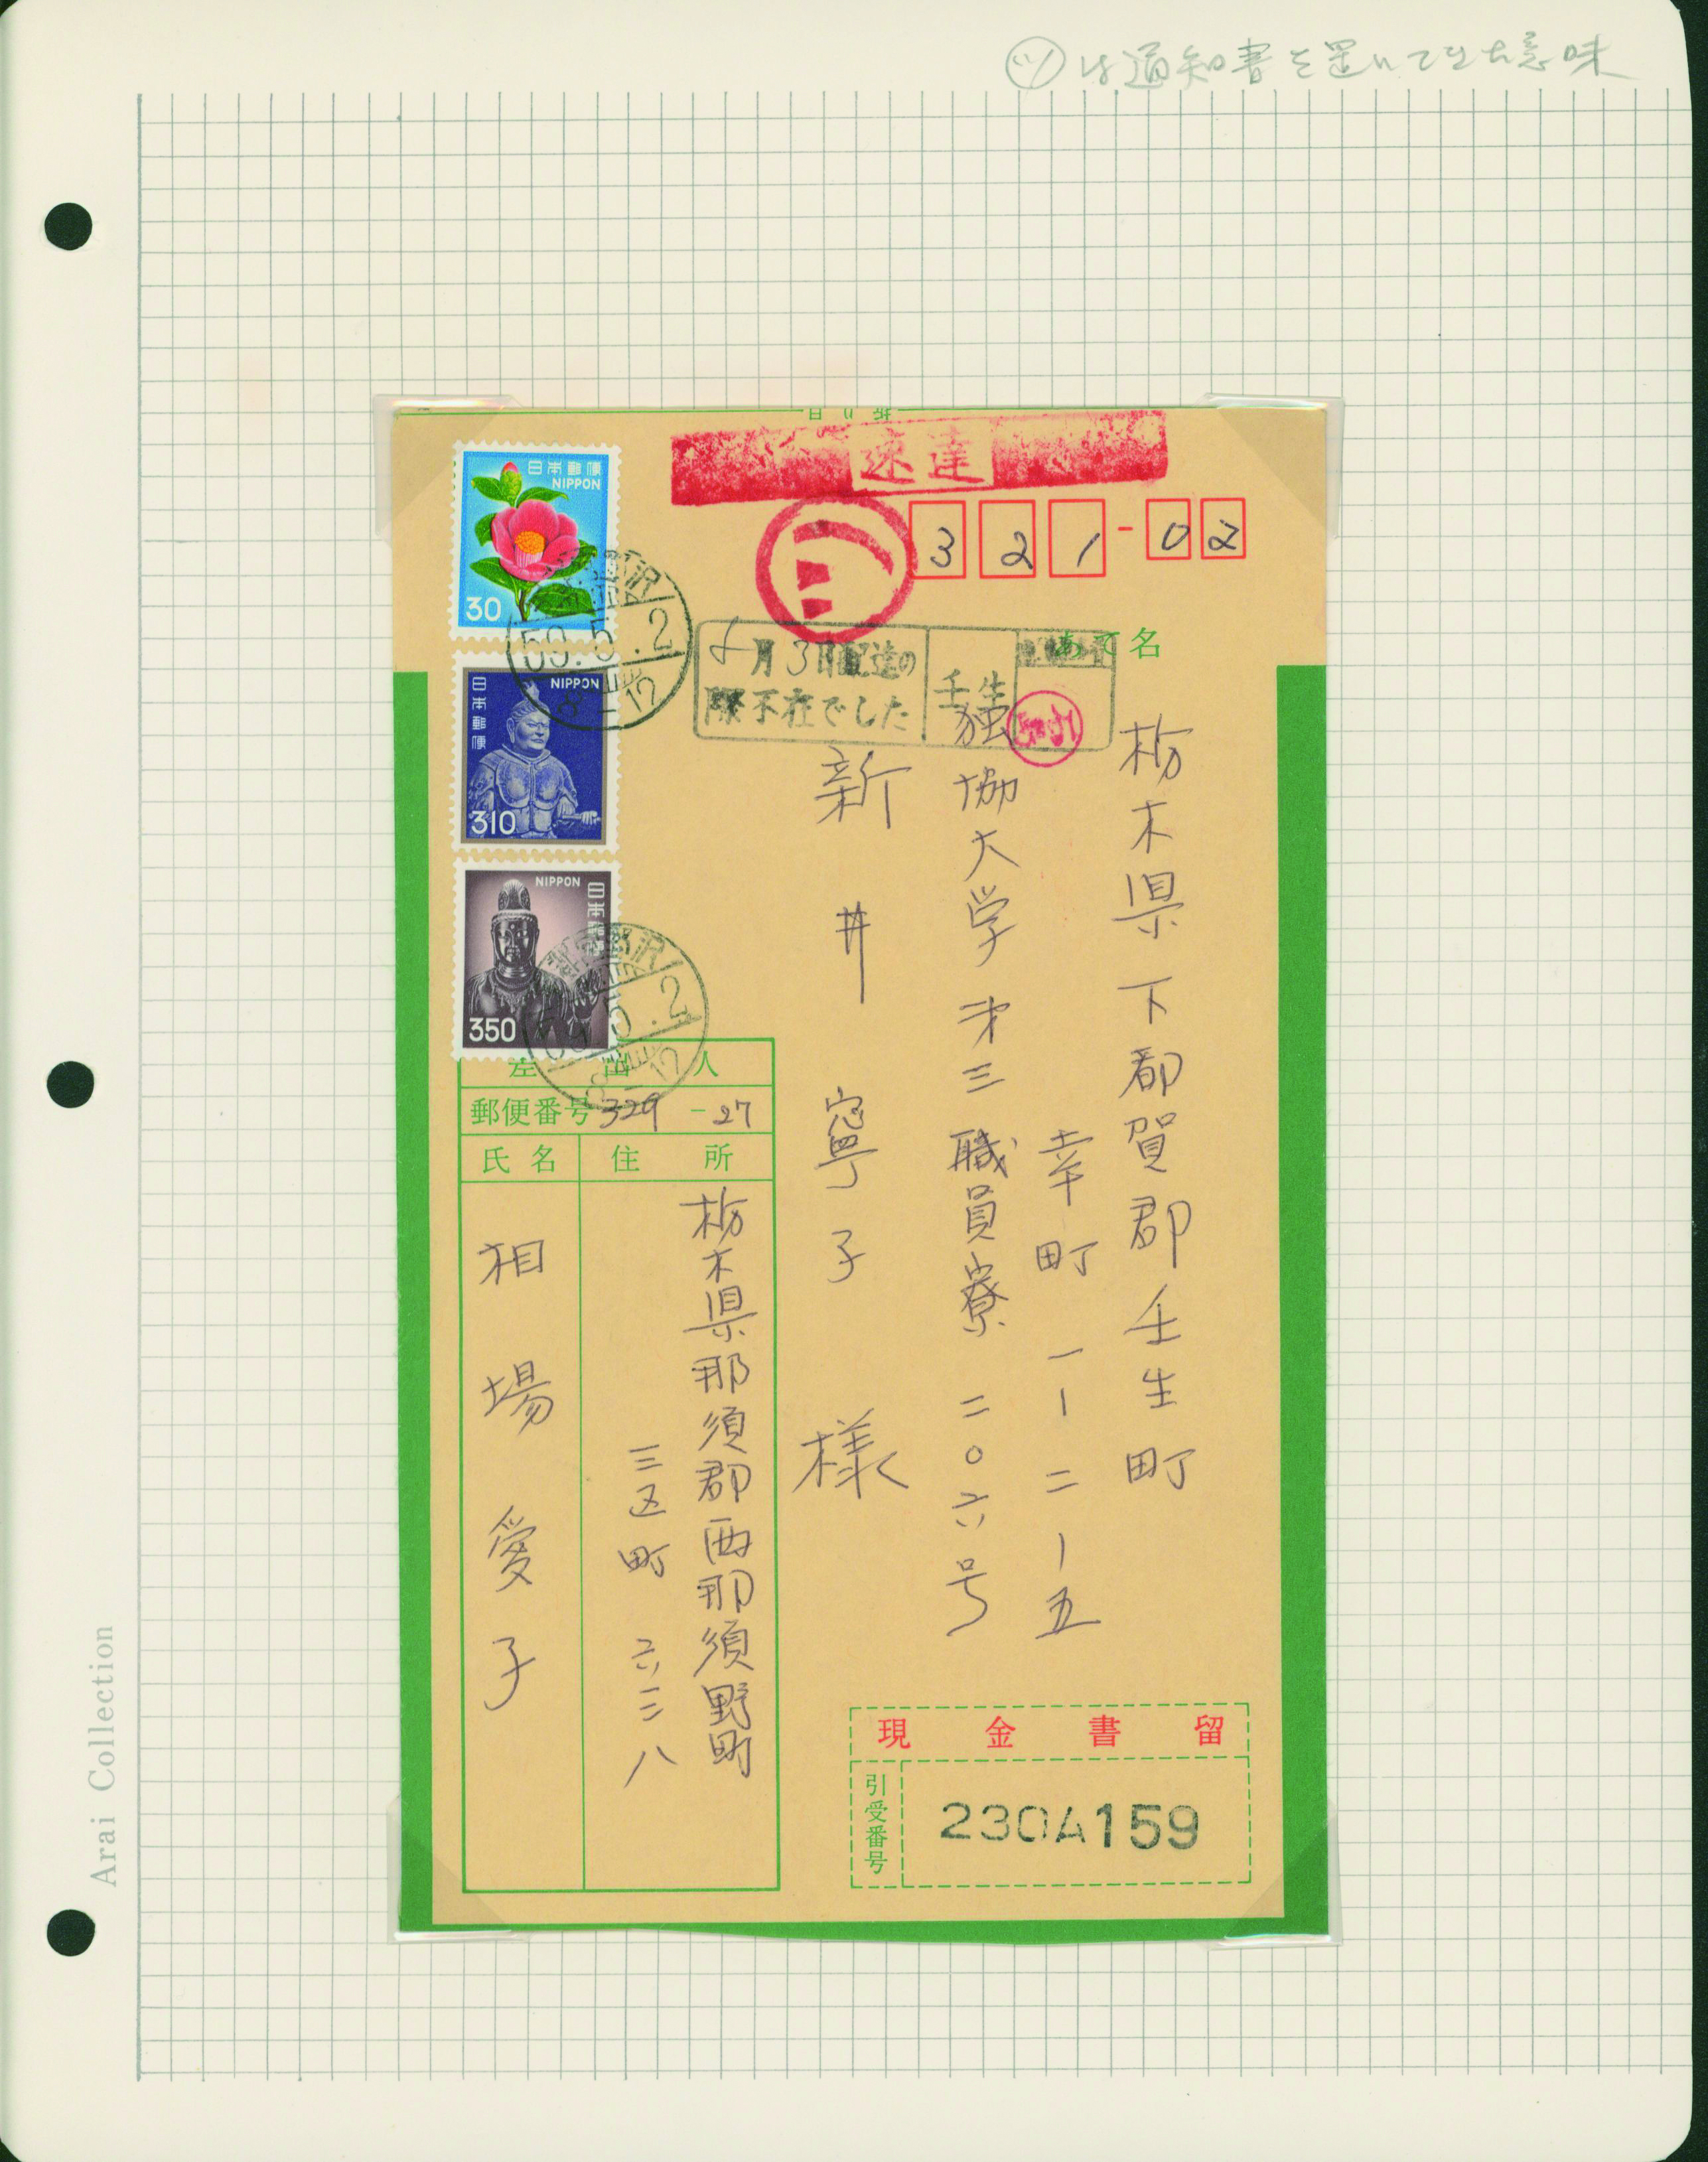 ㋡は通知書を置いてきた意味
速達
321-02
あて名
5月3日配達の
際不在でした
壬生
栃木県下都賀郡壬生町
幸町一ー二ー五
独協大学第三職員寮 二〇六号
新井寧子 様
日本郵便
NIPPON
30
日本郵便
NIPPON
310
日本郵便
NIPPON
350
59.5.2
差出人
郵便番号 329-27
氏名 住所
栃木県那須郡西那須野町
三区町 六三八
相場愛子
現金書留
引受番号
230A159
Arai Collection